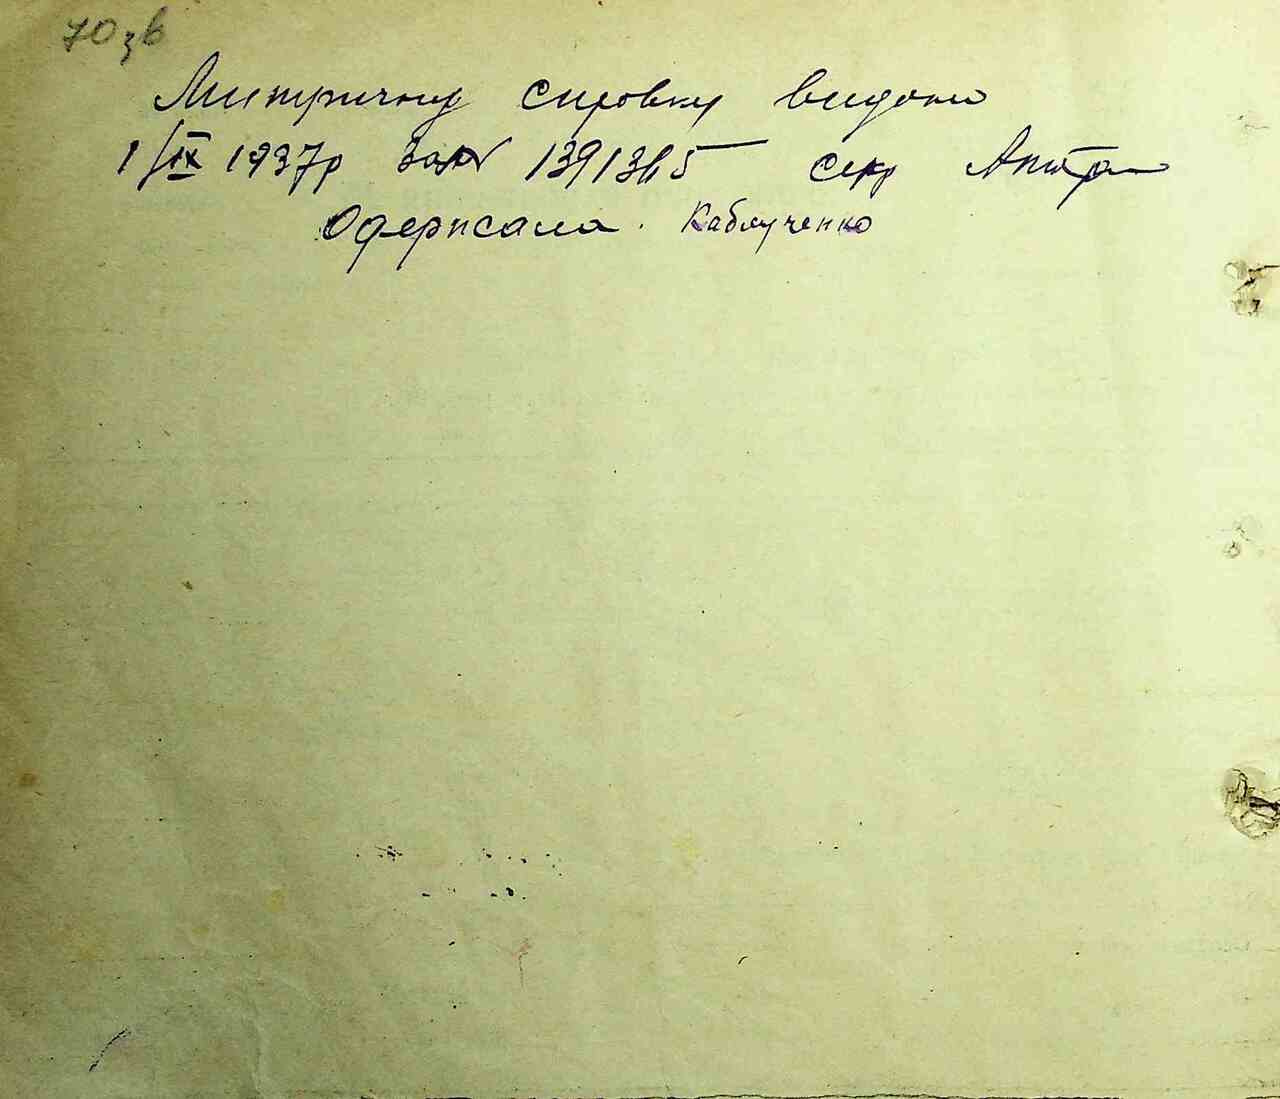 70 зв
Митричну справку видано
1/IX 1937р за № 1391365 секр
Одержала. Каблученко